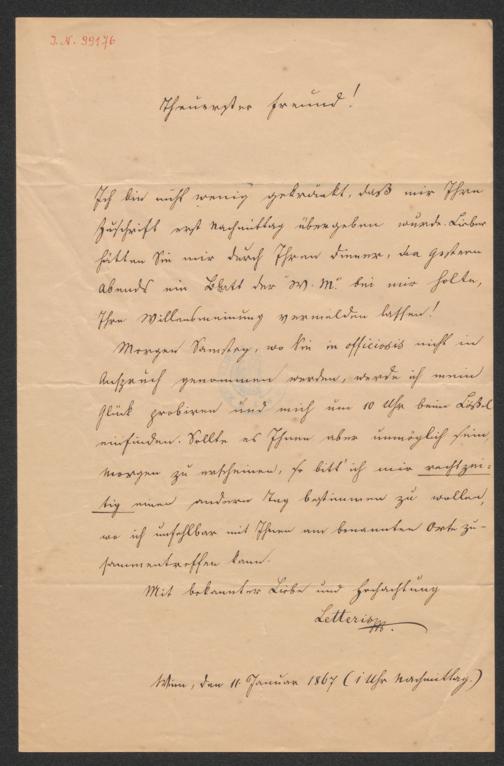 J.N. 99176
Theuerster Freund!
Ich bin nicht wenig gekränkt, daß mir Ihre
Zuschrift erst Nachmittag übergeben wurde. Lieber
hätten Sie mir durch Ihren Diener, der gestern
Abends ein Blatt der "W. M." bei mir holte,
Ihre Willensmeinung vermelden lassen!
Morgen Samstag, wo Sie in officiosis nicht in
Anspruch genommen werden, werde ich mein
Glück probiren und mich um 10 Uhr beim
einfinden. Sollte es Ihnen aber unmöglich sein,
morgen zu erscheinen, so bitt' ich mir rechtzei-
tig einen andern Tag bestimmen zu wollen,
wo ich unfehlbar mit Ihnen am benannten Orte zu-
sammentreffen kann.
Mit bekannter Liebe und Hochachtung
Letteris
Wien, den 11 Januar 1867 (1 Uhr Nachmittag.)